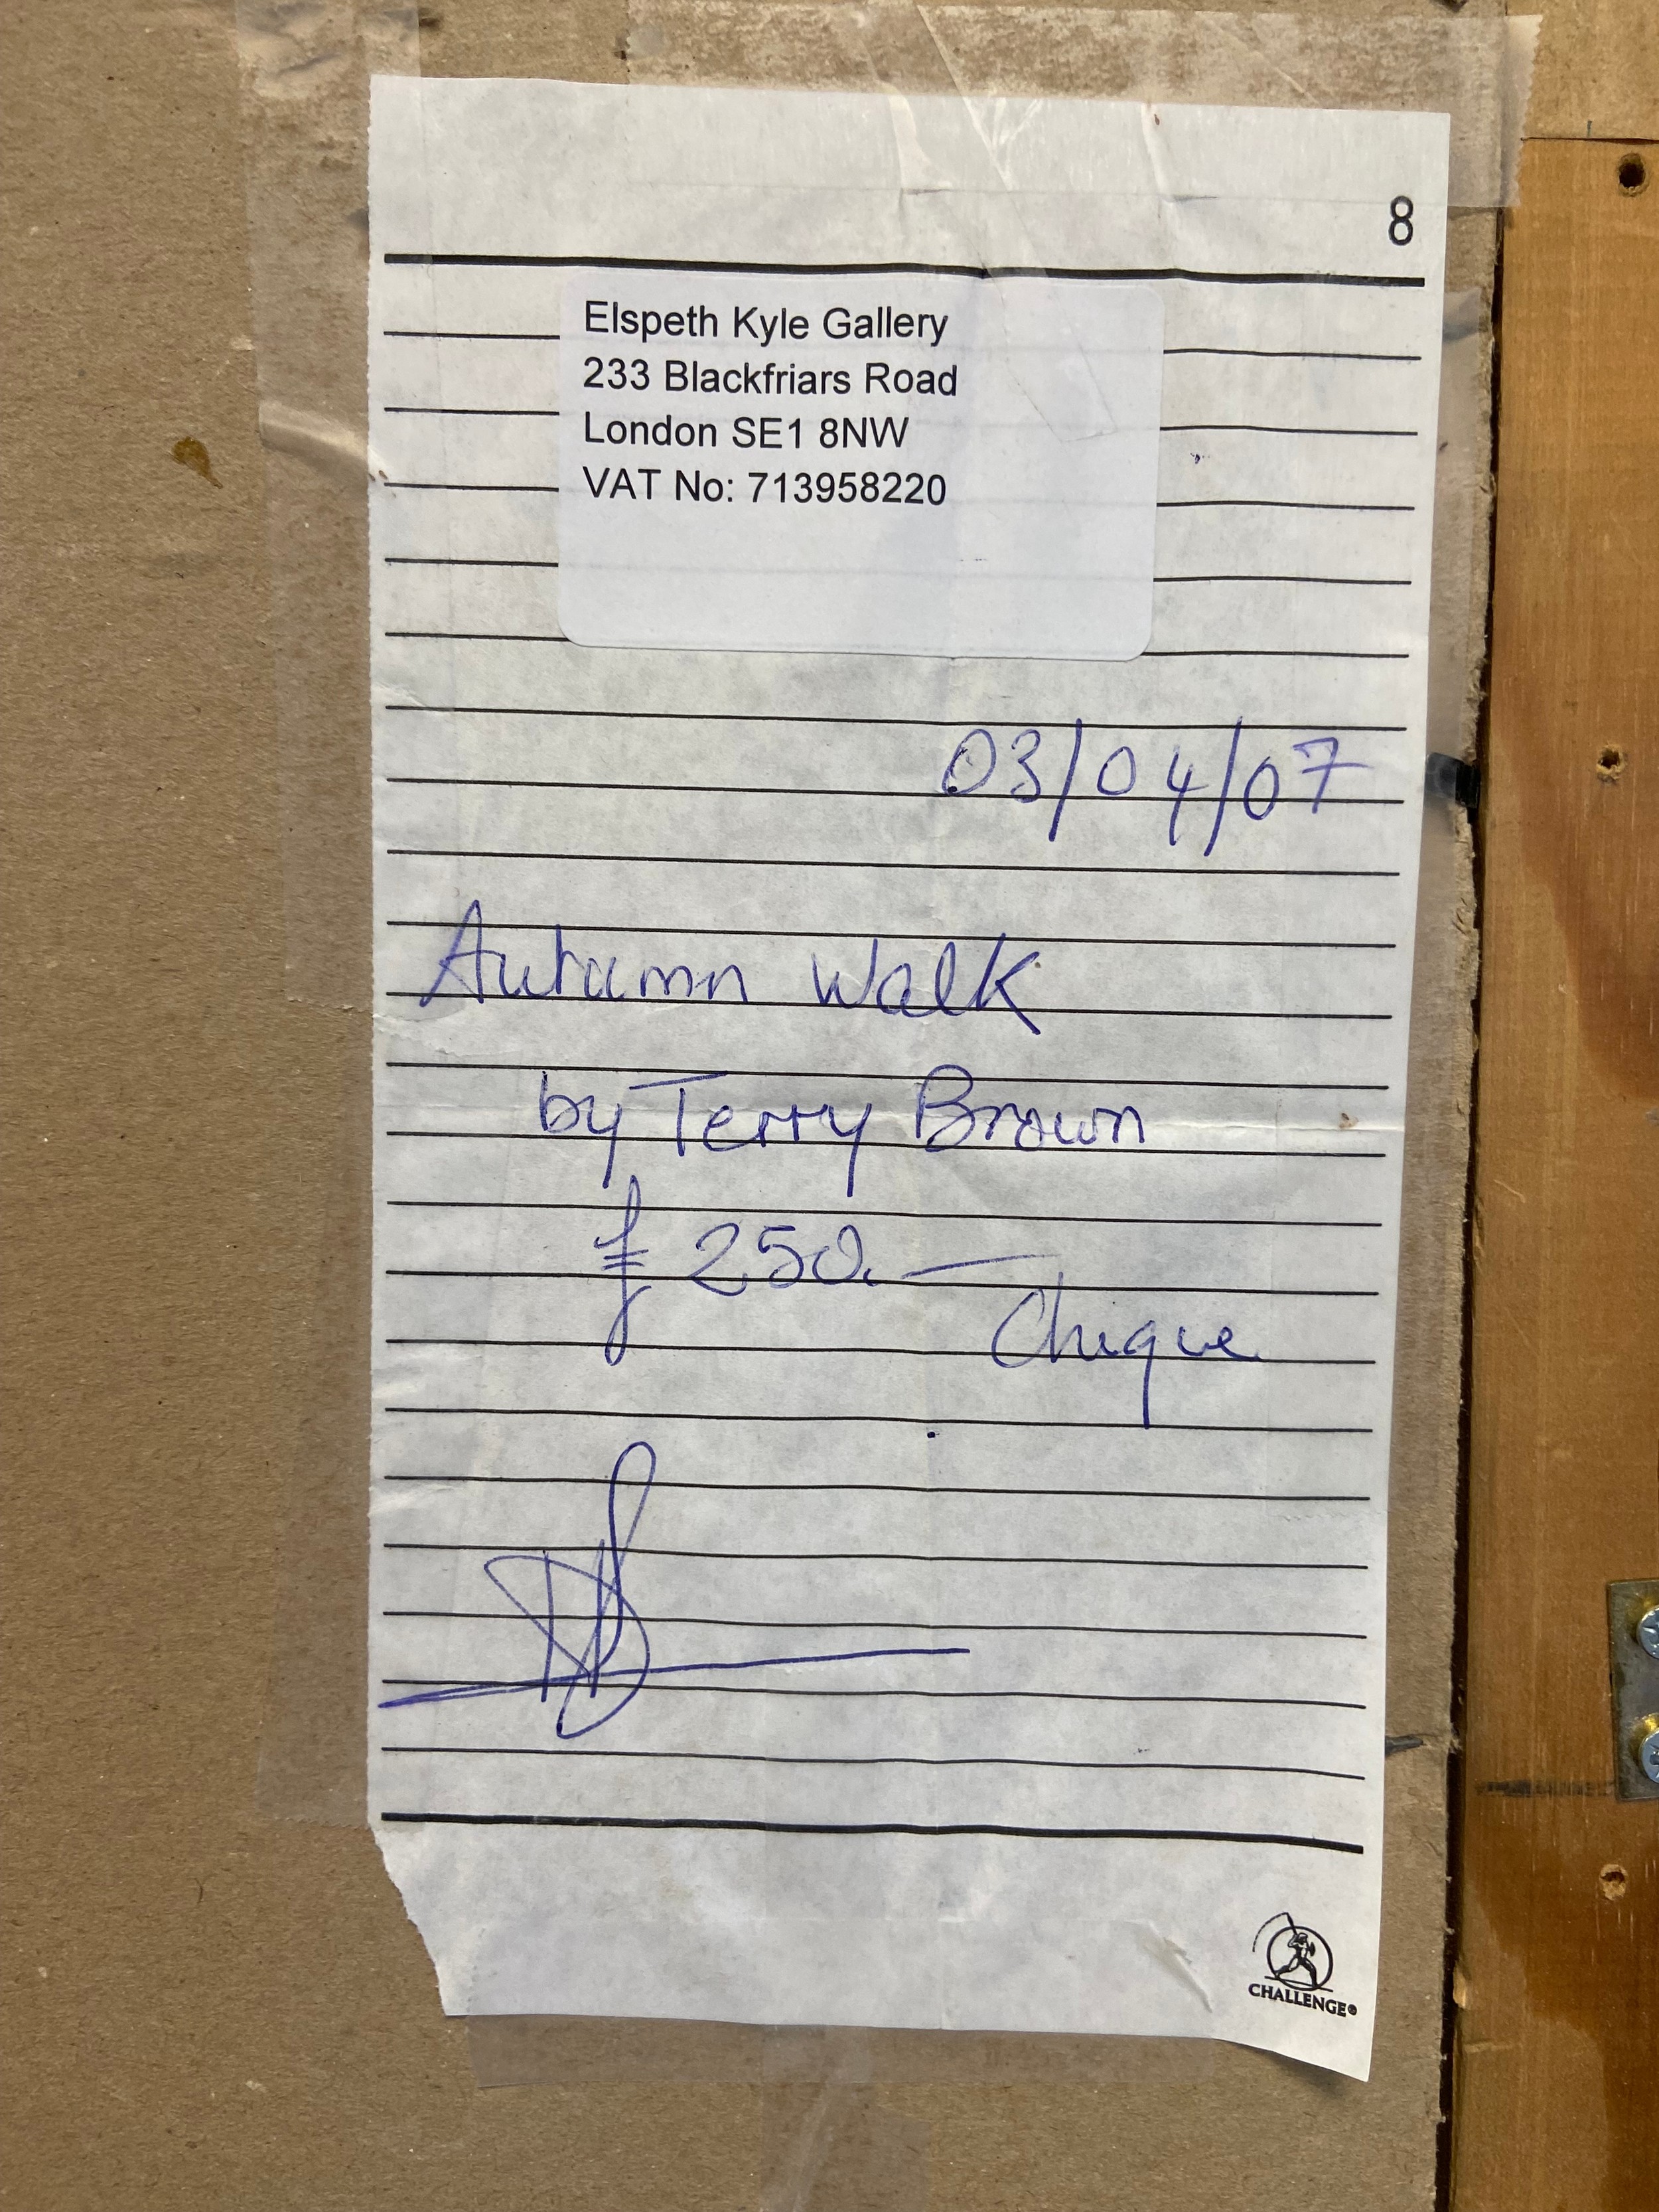 8
Elspeth Kyle Gallery
233 Blackfriars Road
London SE1 8NW
VAT No: 713958220
03/04/07
Autumn Walk
by Terry Brown
£ 250.—
Cheque
CHALLENGE®